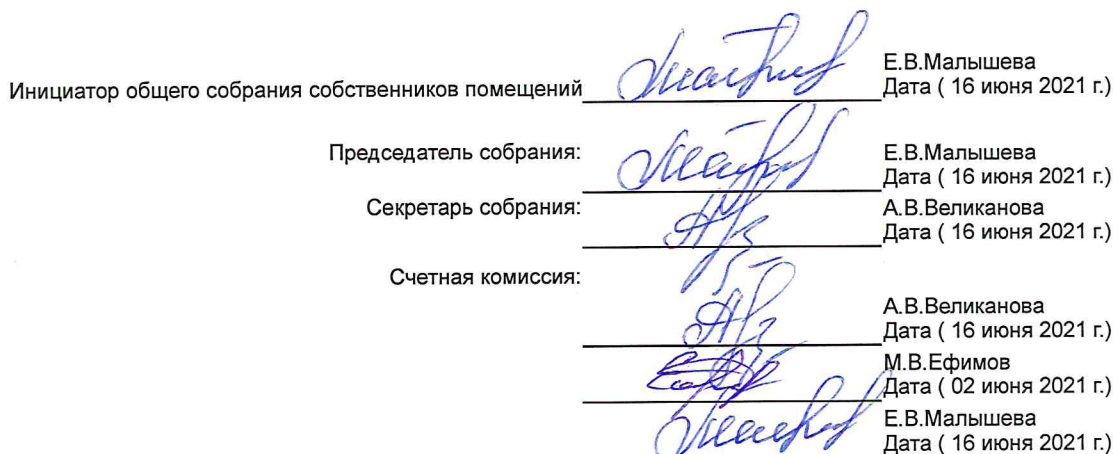 Е.В.Малышева
Инициатор общего собрания собственников помещений Дата ( 16 июня 2021 г.)
Председатель собрания: Е.В.Малышева
Дата ( 16 июня 2021 г.)
Секретарь собрания: А.В.Великанова
Дата ( 16 июня 2021 г.)
Счетная комиссия:
А.В.Великанова
Дата ( 16 июня 2021 г.)
М.В.Ефимов
Дата ( 02 июня 2021 г.)
Е.В.Малышева
Дата ( 16 июня 2021 г.)